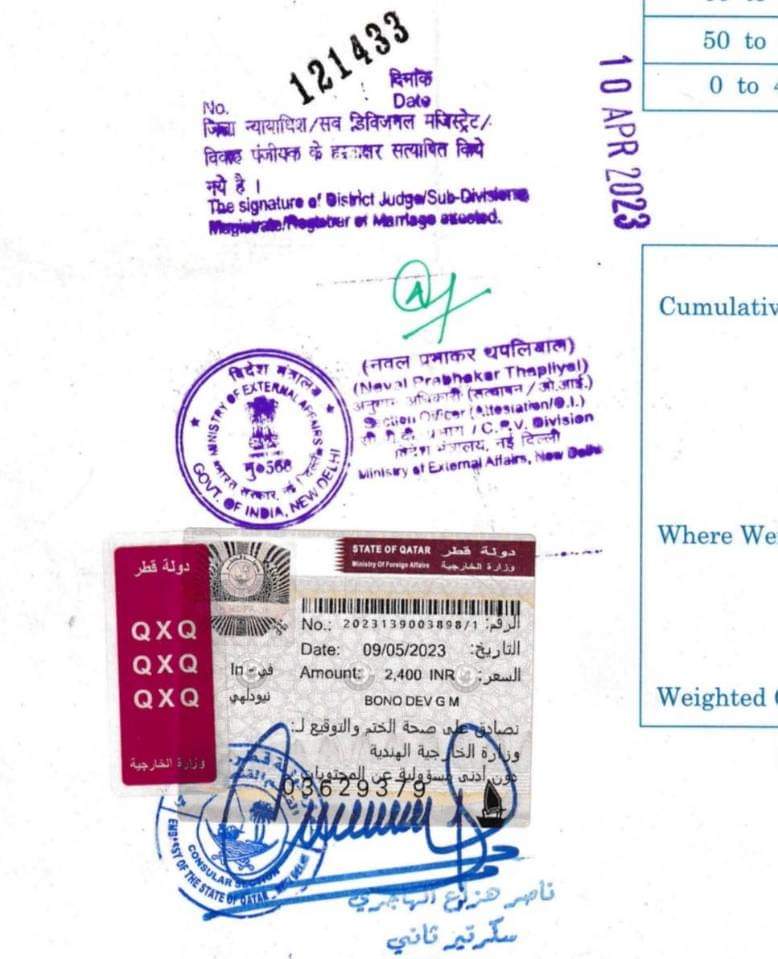 50 to
0 to 4
121433
10 APR 2023
No.
दिनांक
Date
जिला न्यायाधिश/सव डिविजनल मजिस्ट्रेट/
विवाह पंजीयक के हस्ताक्षर सत्यापित किये
गये है ।
The signature of District Judge/Sub-Divisional
Magistrate/Registrar of Marriage attested.
Cumulativ
(नवल प्रभाकर थपलियाल)
(Naval Prabhakar Thapliyal)
अनुभाग अधिकारी (सत्यापन / ओ.आई.)
Section Officer (Attestation/O.I.)
सी.पी.वी. प्रभाग / C.P.V. Division
विदेश मंत्रालय, नई दिल्ली
Ministry of External Affairs, New Delhi
विदेश मंत्रालय
MINISTRY OF EXTERNAL AFFAIRS
मु०568
भारत सरकार, नई दिल्ली
GOVT. OF INDIA, NEW DELHI
Where We
Weighted
دولة قطر
QXQ
QXQ
QXQ
وزارة الخارجية
STATE OF QATAR دولة قطر
Ministry Of Foreign Affairs وزارة الخارجية
No.: 2023139003898/1 الرقم:
Date: 09/05/2023 التاريخ:
In في Amount: 2,400 INR السعر:
نيودلهي BONO DEV G M
نصادق على صحة الختم والتوقيع لـ:
وزارة الخارجية الهندية
دون أدنى مسؤولية عن المحتويات
03629379
CONSULAR SECTION
EMBASSY OF THE STATE OF QATAR - NEW DELHI
ناصر هزاع الهاجري
سكرتير ثاني